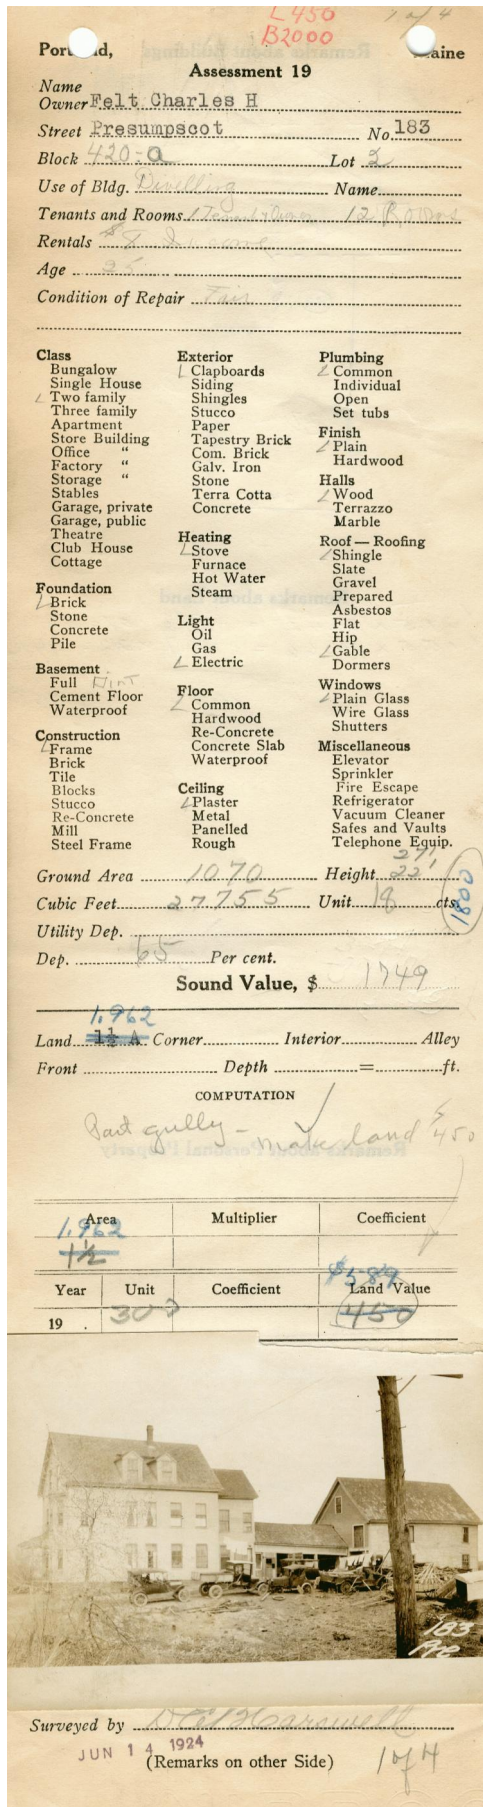 L 450
1 of 4
B2000
Portland, Maine
Assessment 19
Name
Owner Felt Charles H
Street Presumpscot No. 183
Block 420-a Lot 2
Use of Bldg. Dwelling Name
Tenants and Rooms 1 Tenant & Owner 12 Rooms
Rentals $8
Age 25
Condition of Repair Fair
Class
Bungalow
Single House
Two family
Three family
Apartment
Store Building
Office "
Factory "
Storage "
Stables
Garage, private
Garage, public
Theatre
Club House
Cottage
Foundation
Brick
Stone
Concrete
Pile
Basement
Full
Cement Floor
Waterproof
Construction
Frame
Brick
Tile
Blocks
Stucco
Re-Concrete
Mill
Steel Frame
Exterior
Clapboards
Siding
Shingles
Stucco
Paper
Tapestry Brick
Com. Brick
Galv. Iron
Stone
Terra Cotta
Concrete
Heating
Stove
Furnace
Hot Water
Steam
Light
Oil
Gas
Electric
Floor
Common
Hardwood
Re-Concrete
Concrete Slab
Waterproof
Ceiling
Plaster
Metal
Panelled
Rough
Plumbing
Common
Individual
Open
Set tubs
Finish
Plain
Hardwood
Halls
Wood
Terrazzo
Marble
Roof — Roofing
Shingle
Slate
Gravel
Prepared
Asbestos
Flat
Hip
Gable
Dormers
Windows
Plain Glass
Wire Glass
Shutters
Miscellaneous
Elevator
Sprinkler
Fire Escape
Refrigerator
Vacuum Cleaner
Safes and Vaults
Telephone Equip.
27'
Ground Area 1070 Height 22'
Cubic Feet 27755 Unit 18 cts.
1800
Utility Dep.
Dep. 65 Per cent.
Sound Value, $ 1749
1.962
Land 1½ A Corner Interior Alley
Front Depth = ft.
COMPUTATION
Part gully - make land $450
Area Multiplier Coefficient
1.962
1½
$589
Year Unit Coefficient Land Value
19 . 300 450
183
Surveyed by
JUN 14 1924
(Remarks on other Side)
1 of 4